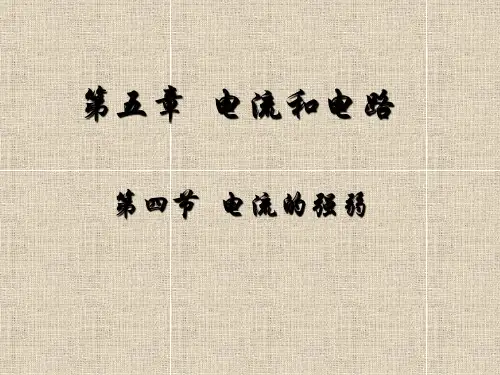 第五章 电流和电路
第四节 电流的强弱